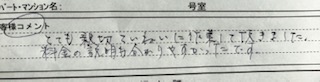 パート・マンション名: 号室
客様コメント
とても親切、ていねいに作業して頂きました。
料金の説明も分かりやすかったです。